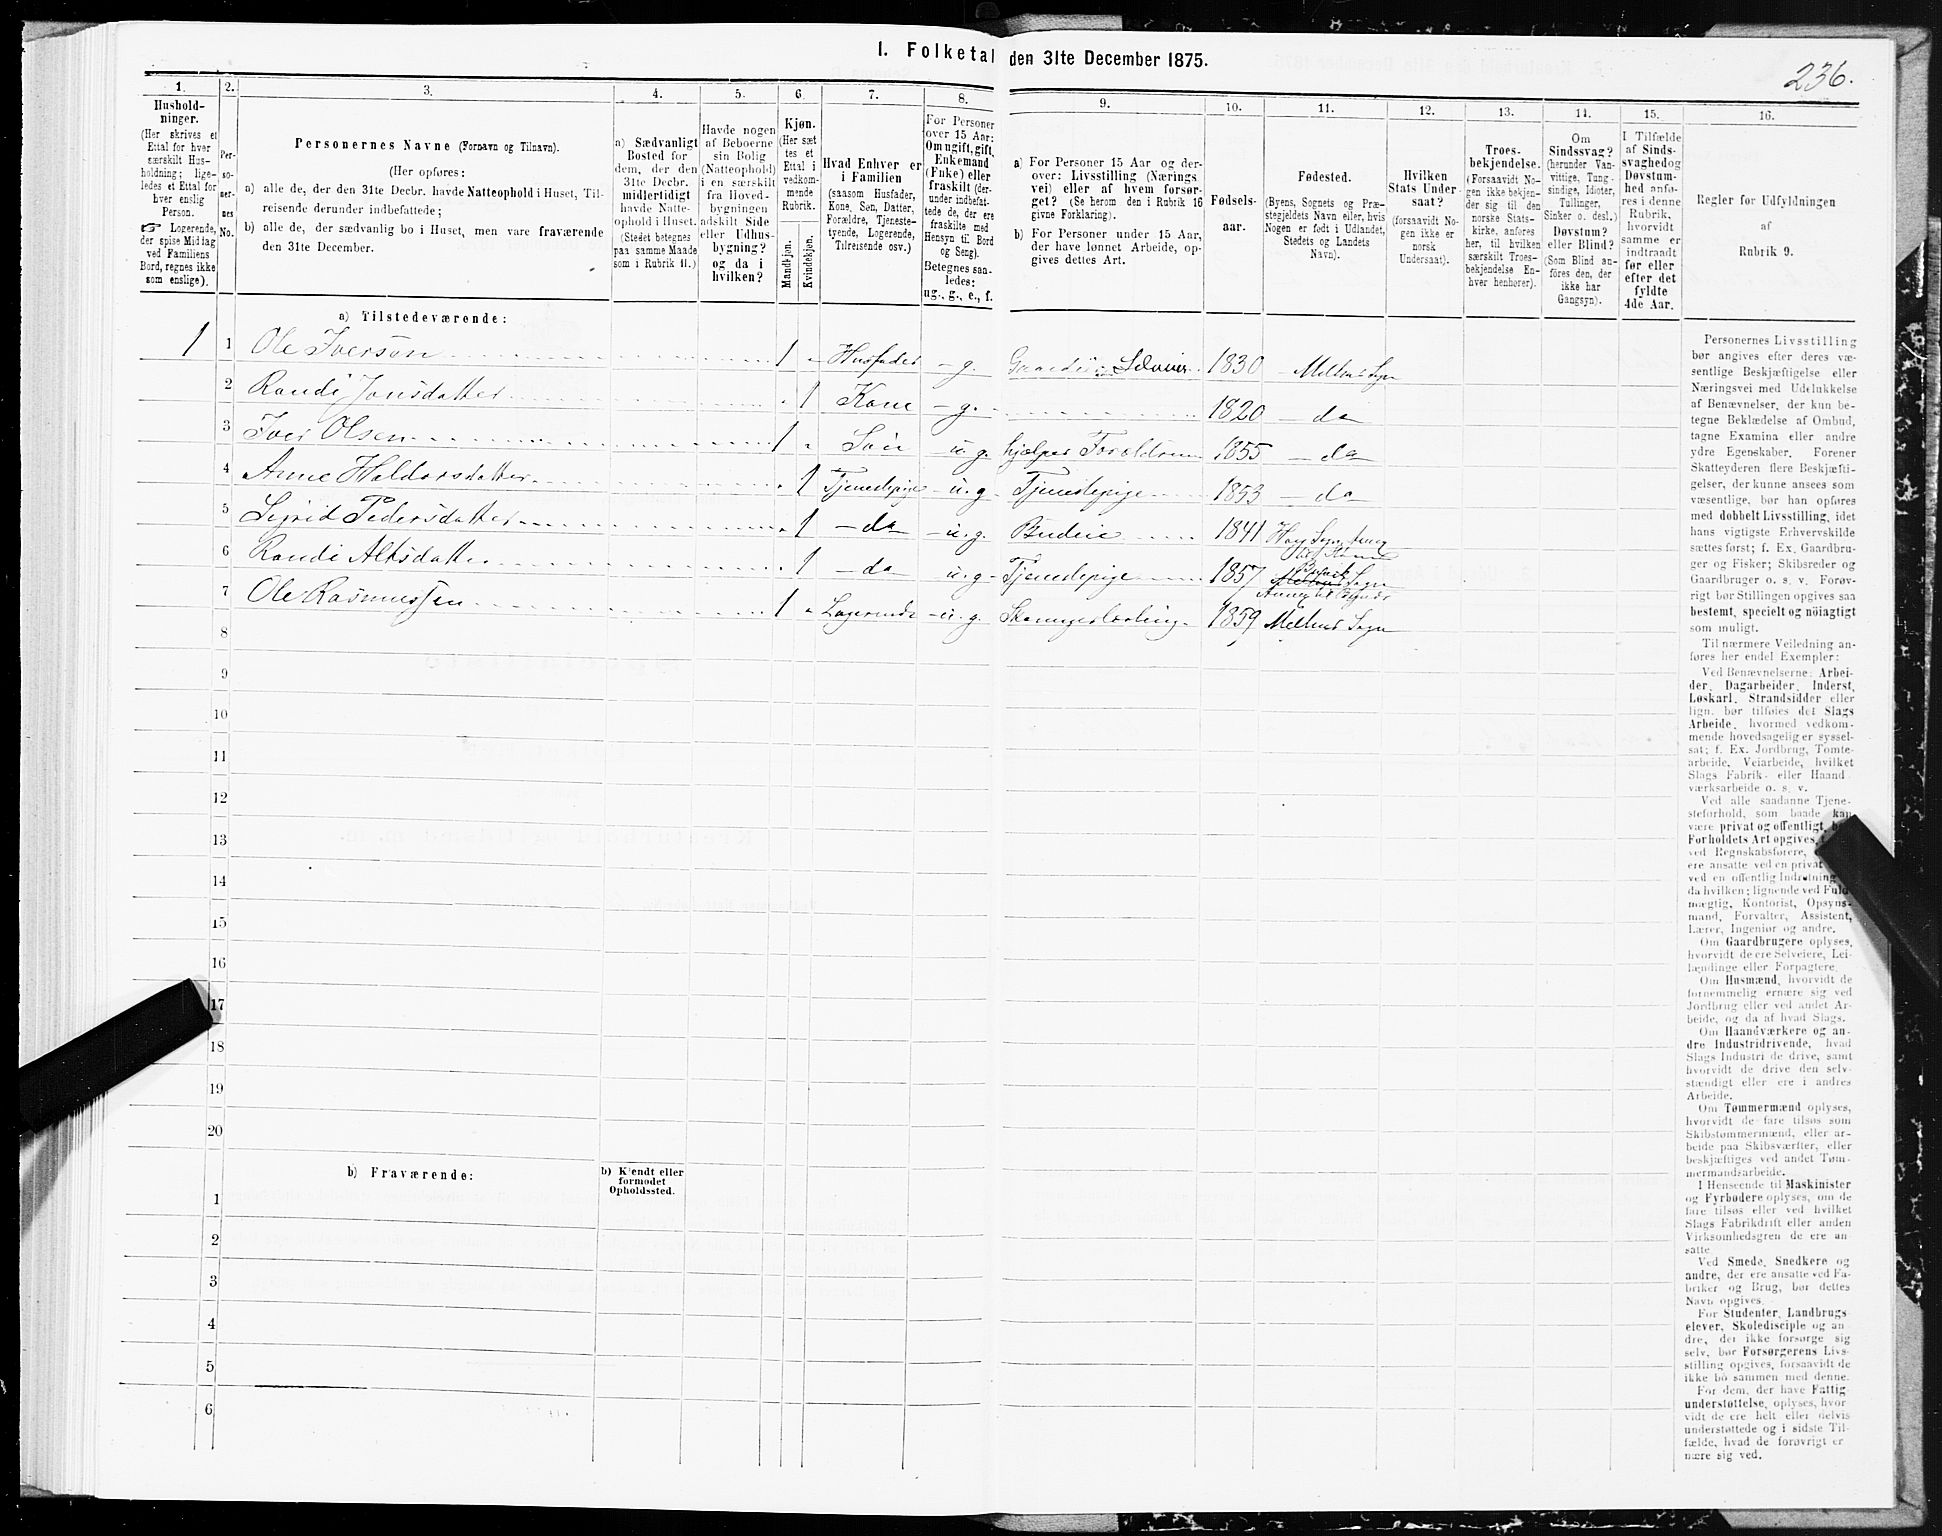 I. Folketal den 31te December 1875.
236.
1.
Hushold-
ninger.
(Her skrives et
Ettal for hver
særskilt Hus-
holdning; lige-
ledes et Ettal for
hver enslig
Person.
☞ Logerende,
der spise Middag
ved Familiens
Bord, regnes ikke
som enslige).
2.
Per-
so-
ner-
nes
No.
3.
Personernes Navne (Fornavn og Tilnavn).
(Her opføres:
a) alle de, der den 31te Decbr. havde Natteophold i Huset, Til-
reisende derunder indbefattede;
b) alle de, der sædvanlig bo i Huset, men vare fraværende
den 31te December.
4.
a) Sædvanligt
Bosted for
dem, der den
31te Decbr.
midlertidigt
havde Natte-
ophold i Huset.
(Stedet betegnes
paa samme Maade
som i Rubrik 11.)
5.
Havde nogen
af Beboerne
sin Bolig
(Natteophold)
i en særskilt
fra Hoved-
bygningen
adskilt Side
eller Udhus-
bygning?
og da i
hvilken?
6.
Kjøn.
(Her sæt
tes et
Ettal i
vedkom-
mende
Rubrik.
Mandkjøn.
Kvindekjøn.
7.
Hvad Enhver er
i Familien
(saasom Husfader,
Kone, Søn, Datter,
Forældre, Tjeneste-
tyende, Logerende,
Tilreisende osv.)
8.
For Personer
over 15 Aar:
Om ugift, gift,
Enkemand
(Enke) eller
fraskilt (der-
under indbefat-
tede de, der ere
fraskilte med
Hensyn til Bord
og Seng).
Betegnes saa-
ledes:
ug., g., e., f.
9.
a) For Personer 15 Aar og der-
over: Livsstilling (Nærings
vei) eller af hvem forsør-
get? (Se herom den i Rubrik 16
givne Forklaring).
b) For Personer under 15 Aar,
der have lønnet Arbeide, op-
gives dettes Art.
10.
Fødsels-
aar.
11.
Fødested.
(Byens, Sognets og Præ-
stegjeldets Navn eller, hvis
Nogen er født i Udlandet,
Stedets og Landets
Navn).
12.
Hvilken
Stats Under-
saat?
(forsaavidt No-
gen ikke er
norsk
Undersaat).
13.
Troes-
bekjendelse.
(Forsaavidt No-
gen ikke bekjen-
der sig til den
norske Stats-
kirke, anføres
her, til hvilken
særskilt Troes-
bekjendelse En-
hver henhører).
14.
Om
Sindssvag?
(herunder Van-
vittige, Tung-
sindige, Idioter,
Tullinger,
Sinker o. desl.)
Døvstum?
eller Blind?
(Som Blind an-
føres den, der
ikke har
Gangsyn).
15.
I Tilfælde
af Sinds-
svaghed og
Døvstum-
hed anfø-
res i denne
Rubrik,
hvorvidt
samme er
indtraadt
før eller
efter det
fyldte
4de Aar.
16.
Regler for Udfyldningen
af
Rubrik 9.
a) Tilstedeværende:
1 1 Ole Iversøn 1 Husfader g. Selveier 1830 Melhus Sogn
2 Randi Jonsdatter 1 Kone g. 1820 da
3 Iver Olsen 1 Søn u.g. hjælper Forældrene 1855 da
4 Anne Haldorsdatter 1 Tjenestepige u.g. Tjenestepige 1853 da
5 Sigrid Pedersdatter 1 da u.g. Budeie 1841
6 Randi 1 da u.g. Tjenestepige 1857 Melhus Sogn
7 Ole Rasmussen 1 Logerende u.g. 1859 Melhus Sogn
8
9
10
11
12
13
14
15
16
17
18
19
20
b) Fraværende:
b) Kjendt eller
formodet
Opholdssted.
1
2
3
4
5
6
Personernes Livsstilling
bør angives efter deres væ-
sentlige Beskjæftigelse eller
Næringsvei med Udelukkelse
af Benævnelser, der kun be-
tegne Beklædelse af Ombud,
tagne Examina eller andre
ydre Egenskaber. Forener
Skatteyderen flere Beskjæfti-
gelser, der kunne ansees som
væsentlige, bør han opføres
med dobbelt Livsstilling, idet
hans vigtigste Erhvervskilde
sættes først; f. Ex. Gaardbru-
ger og Fisker; Skibsreder og
Gaardbruger o. s. v. Forøv-
rigt bør Stillingen opgives saa
bestemt, specielt og nöiagtigt
som muligt.
Til nærmere Veiledning an-
føres her endel Exempler:
Ved Benævnelserne: Arbei-
der, Dagarbeider, Inderst,
Løskarl, Strandsidder eller
lign. bør tilføies det Slags
Arbeide, hvormed vedkom-
mende hovedsagelig er syssel-
sat; f. Ex. Jordbrug, Tomte-
arbeide, Veiarbeide, hvilket
Slags Fabrik- eller Haand-
værksarbeide o. s. v.
Ved alle saadanne Tjene-
steforhold, som baade kan
være privat og offentligt, bør
Forholdets Art opgives,
ved Regnskabsførere,
ere ansatte ved en privat
ved en offentlig Indretning
da hvilken; lignende ved Fuld-
mægtig, Kontorist, Opsyns-
mand, Forvalter, Assistent,
Lærer, Ingeniør og andre.
Om Gaardbrugere oplyses,
hvorvidt de ere Selveiere, Lei-
lændinge eller Forpagtere.
Om Husmænd, hvorvidt de
fornemmelig ernære sig ved
Jordbrug eller ved andet Ar-
beide, og da af hvad Slags.
Om Haandværkere og an-
dre Industridrivende, hvad
Slags Industri de drive, samt
hvorvidt de drive den selv-
stændigt eller ere i andres
Arbeide.
Om Tømmermænd oplyses,
hvorvidt de fare tilsøs som
Skibstømmermænd, eller ar-
beide paa Skibsværfter, eller
beskjæftiges ved andet Tøm-
mermandsarbeide.
I Henseende til Maskinister
og Fyrbødere oplyses, om de
fare tilsøs eller ved hvilket
Slags Fabrikdrift eller anden
Virksomhedsgren de ere an-
satte.
Ved Smede, Snedkere og
andre, der ere ansatte ved Fa-
briker og Brug, bør dettes
Navn opgives.
For Studenter, Landbrugs-
elever, Skoledisciple og an-
dre, der ikke forsørge sig
selv, bør Forsørgerens Livs-
stilling opgives, forsaavidt de
ikke bo sammen med denne.
For dem, der have Fattig-
understøttelse, oplyses, hvor-
vidt de ere helt eller delvis
understøttede og i sidste Til-
fælde, hvad de forøvrigt er-
nære sig ved.